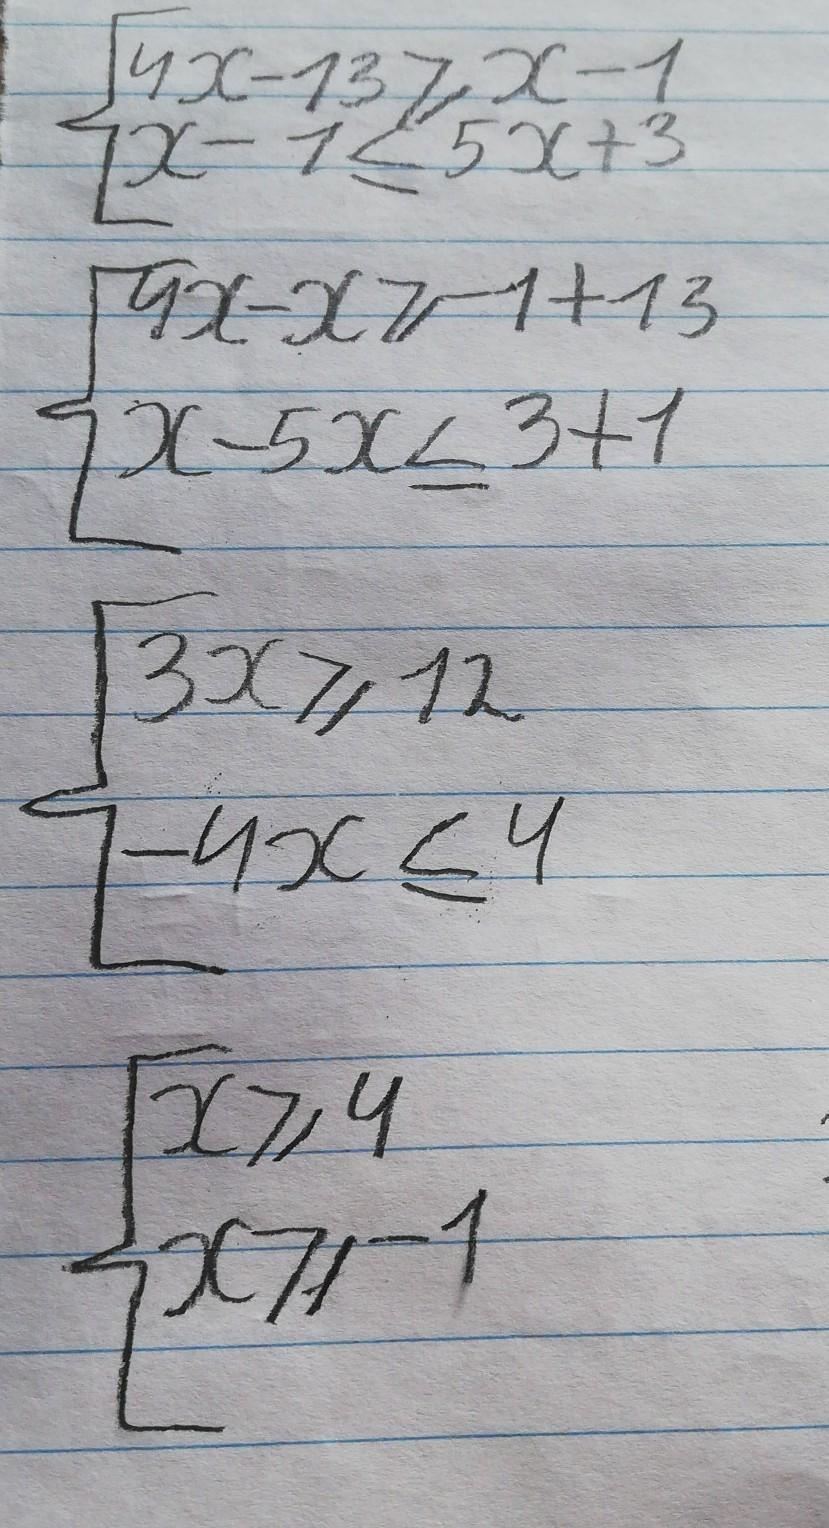 4x-13⩾x-1
x-1≤5x+3
4x-x⩾-1+13
x-5x≤3+1
3x⩾12
-4x≤4
x⩾4
x⩾-1